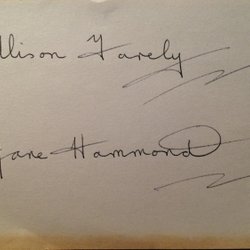 llison Farely
Jane Hammond